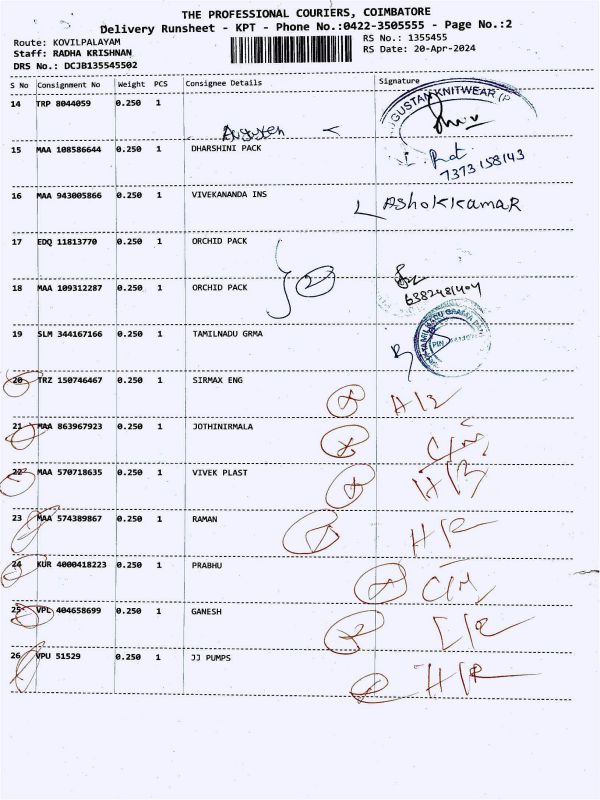 THE PROFESSIONAL COURIERS, COIMBATORE
Delivery Runsheet - KPT - Phone No.:0422-3505555 - Page No.:2
Route: KOVILPALAYAM
Staff: RADHA KRISHNAN
DRS No.: DCJB135545502
RS No.: 1355455
RS Date: 20-Apr-2024
S No Consignment No Weight PCS Consignee Details Signature
14 TRP 8044059 0.250 1
GUSTAN KNITWEAR (P
15 MAA 108586644 0.250 1 DHARSHINI PACK
7373158143
16 MAA 943005866 0.250 1 VIVEKANANDA INS
AShokkumar
17 EDQ 11813770 0.250 1 ORCHID PACK
18 MAA 109312287 0.250 1 ORCHID PACK
2
6382481404
19 SLM 344167166 0.250 1 TAMILNADU GRMA
TAMIL NADU GRAMA
PIN
20 TRZ 150746467 0.250 1 SIRMAX ENG
21 MAA 863967923 0.250 1 JOTHINIRMALA
C/M
22 MAA 570718635 0.250 1 VIVEK PLAST
23 MAA 574389867 0.250 1 RAMAN
H/R
24 KUR 4000418223 0.250 1 PRABHU
C/M
25 VPL 404658699 0.250 1 GANESH
26 VPU 51529 0.250 1 JJ PUMPS
H/R